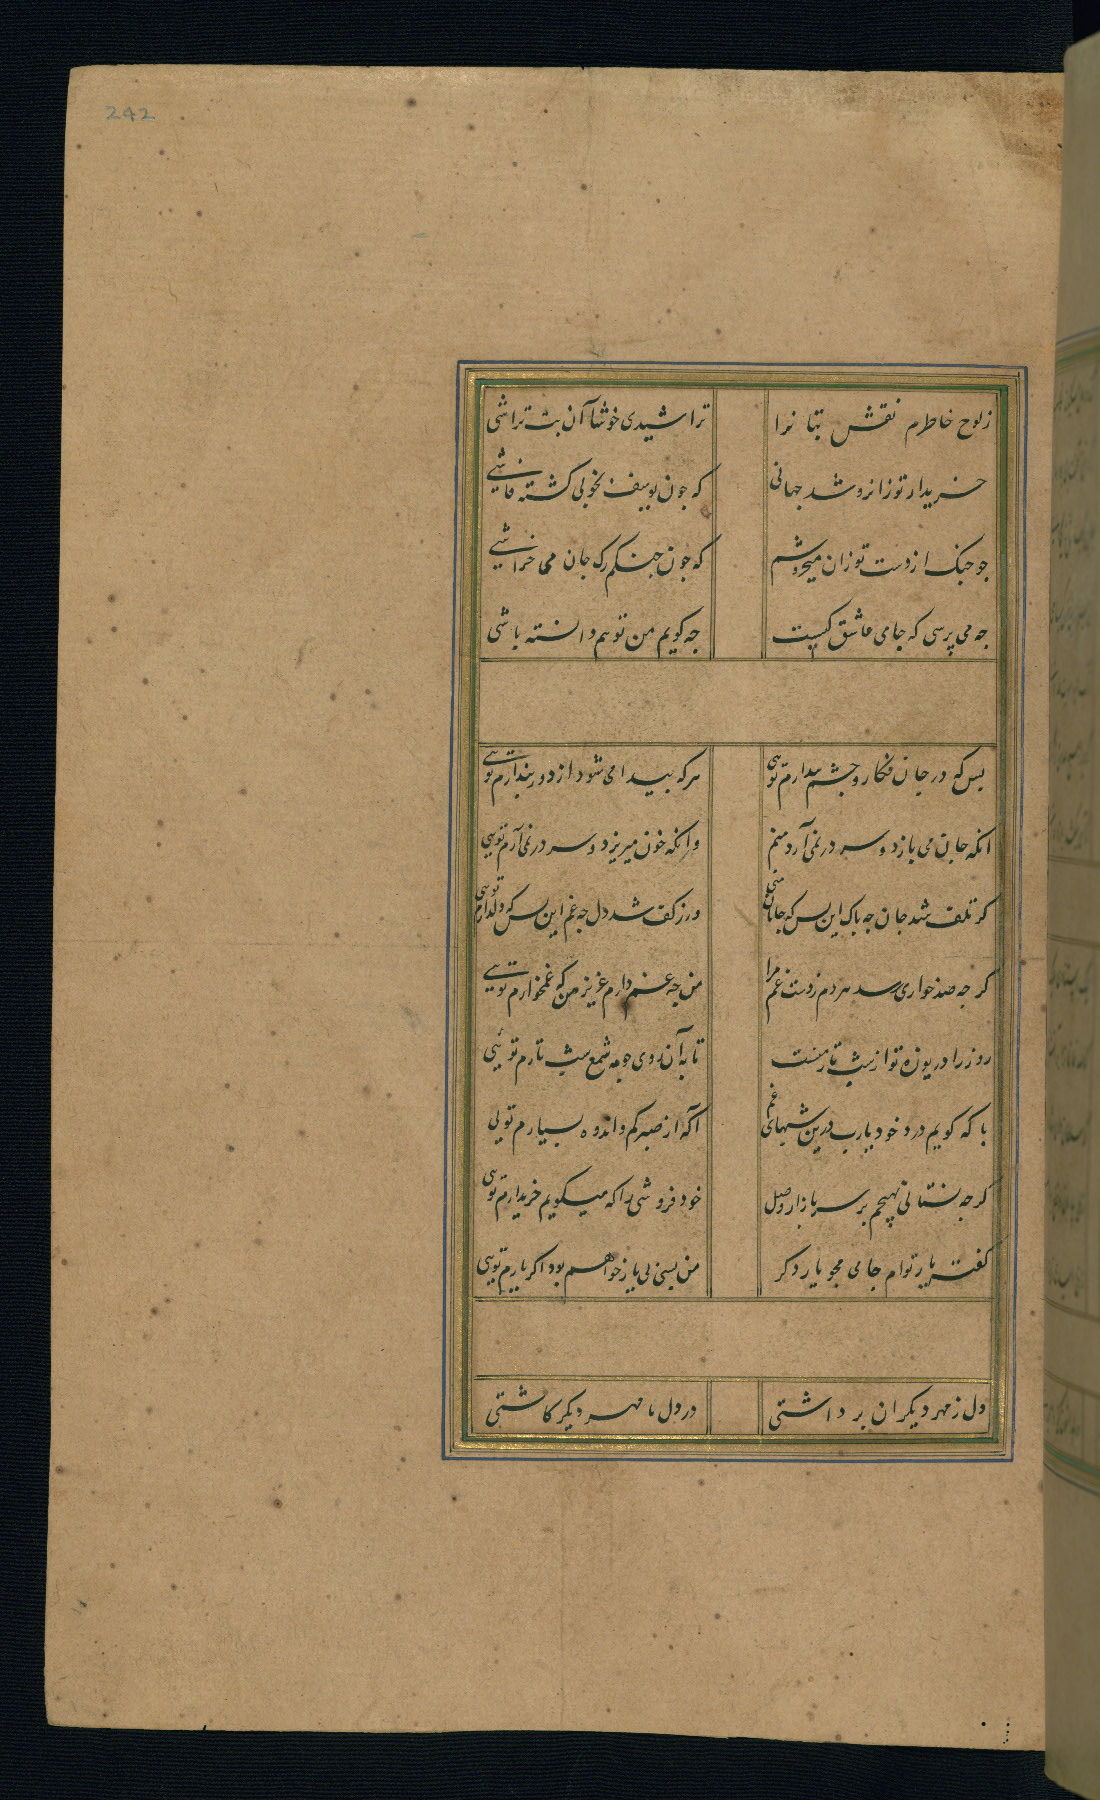 242
ز لوح خاطرم نقش بتانرا تراشیدی خوشا آن بت تراشی
خریدار تو زانرو شد جهانی که جون یوسف بخوبی کشته فاشی
جو جنک از دست تو زان میخروشم که جون جنکم رک جان می خراشی
جه می پرسی که جامی عاشق کیست جه کویم من تو هم دانسته باشی
بس که در جان فکار و جشم بیدارم تویی هر که بیدا می شود از دور بندارم تویی
انکه جان می بازد و سر در نمی آرد منم وانکه خون میریزد و سر در نمی آرم تویی
کر تلف شد جان جه باک این بس که جانان منی ور ز کف شد دل جه غم این بس که دلدارم تویی
کر جه صد خواری رسد هر دم ز دست غم مرا من جه غم دارم عزیز من که غمخوارم تویی
روز را دریوزه نور از شب تار منست تا به آن روی جو مه شمع شب تارم تویی
با که کویم درد خود یارب درین شبهای غم آکه از صبر کم و اندوه بسیارم تویی
کر جه نستانی بهیجم بر سر بازار وصل خود فروشی را که میکویم خریدارم تویی
کفتی یار توام جامی مجو یار دکر من بسی بی یار خواهم بود اکر یارم تویی
دل ز مهر دیکران برداشتی در دل ما مهر دیکر کاشتی